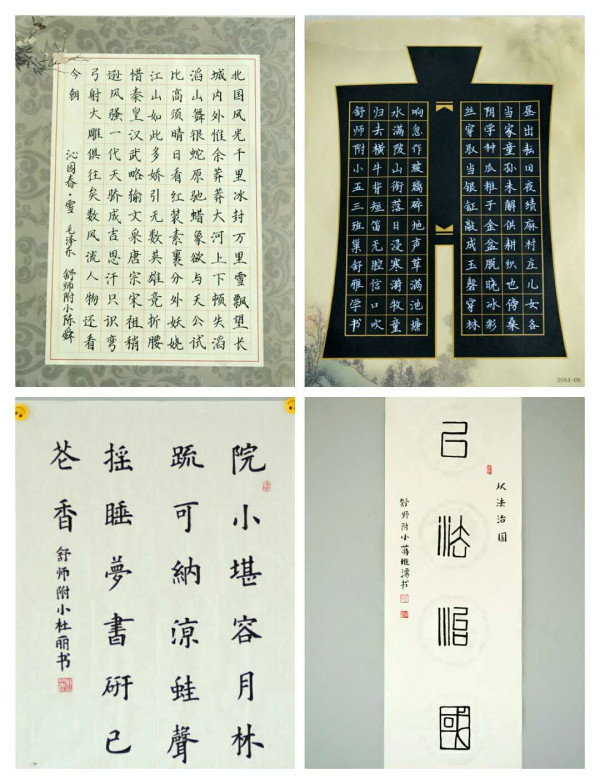 北国风光千里冰封万里雪飘望长
城内外惟余莽莽大河上下顿失滔
滔山舞银蛇原驰蜡象欲与天公试
比高须晴日看红装素裹分外妖娆
江山如此多娇引无数英雄竞折腰
惜秦皇汉武略输文采唐宗宋祖稍
逊风骚一代天骄成吉思汗只识弯
弓射大雕俱往矣数风流人物还看
今朝
沁园春·雪 毛泽东 舒师附小陈舜
昼出耘田夜绩麻村庄儿女各
当家童孙未解供耕织也傍桑
阴学种瓜稚子金盆脱晓冰彩
丝穿取当银钲敲成玉磬穿林
响忽作玻璃碎地声草满池塘
水满陂山衔落日浸寒漪牧童
归去横牛背短笛无腔信口吹
舒师附小五三班巢舒雅学书
39A4-06
院小堪容月林
疏可納涼蛙聲
摇睡夢書研已
香
舒师附小杜丽书
以法治國
以法治国
舒师附小蒋书